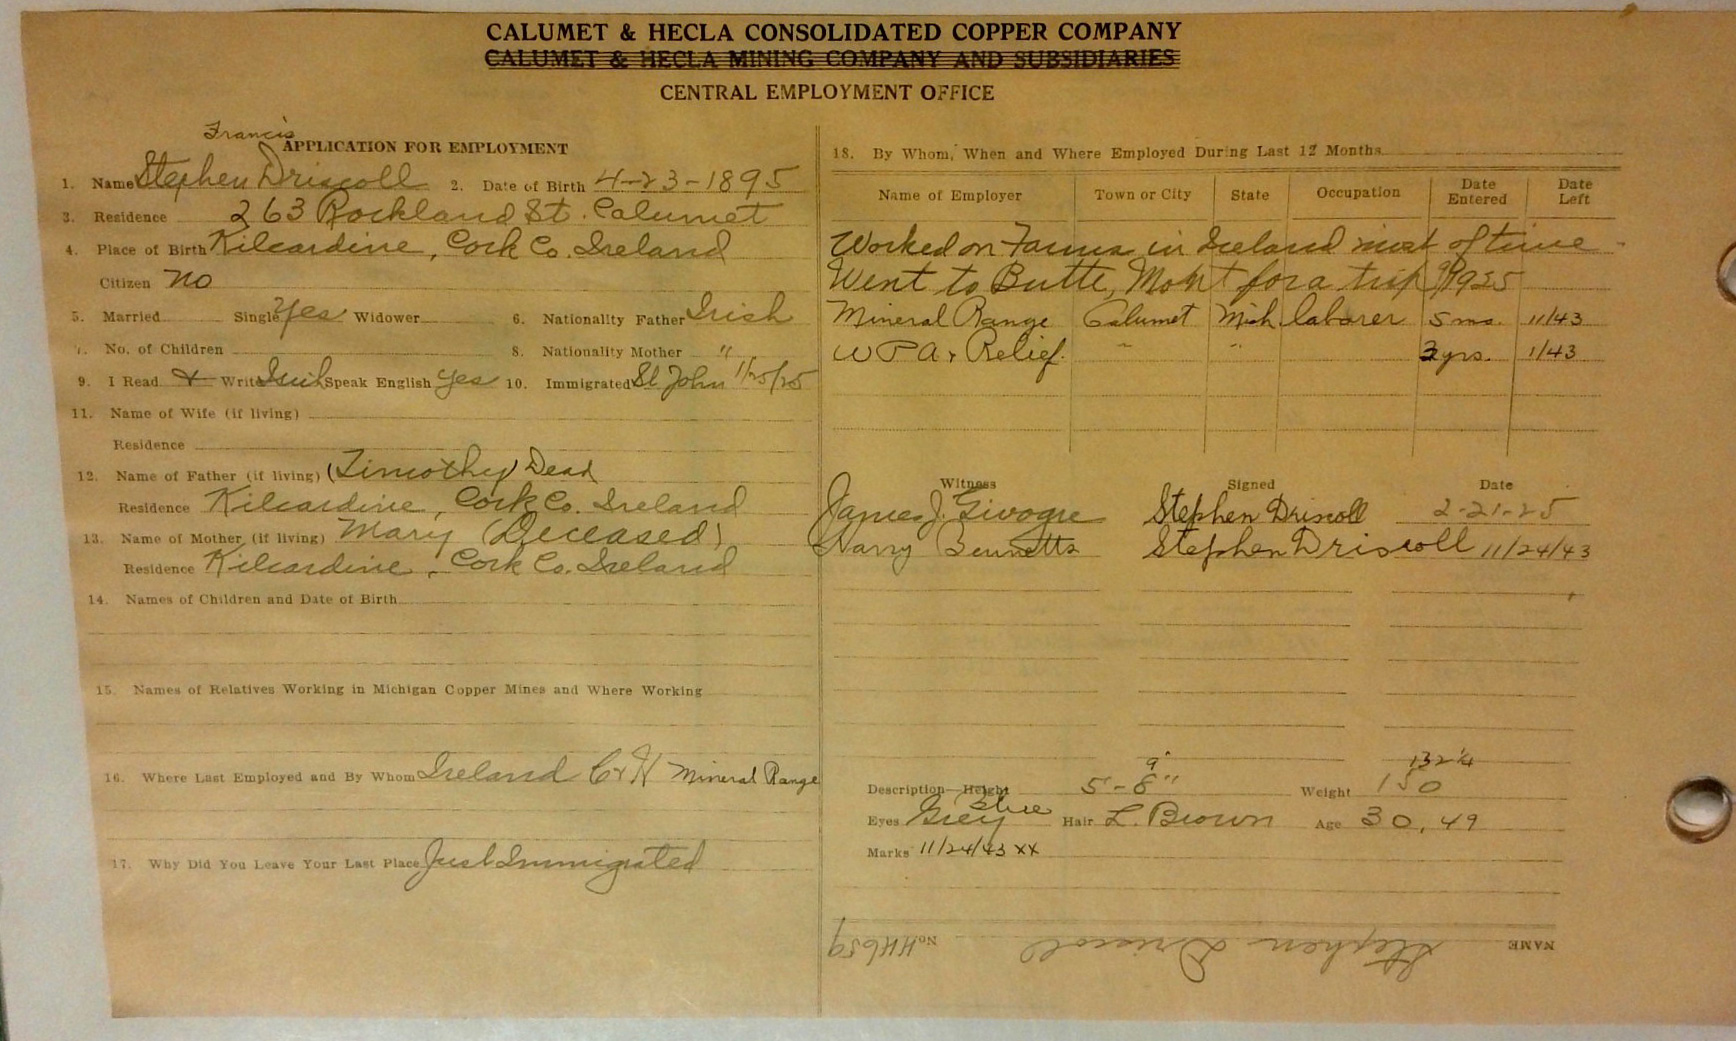 CALUMET & HECLA CONSOLIDATED COPPER COMPANY
CALUMET & HECLA MINING COMPANY AND SUBSIDIARIES
CENTRAL EMPLOYMENT OFFICE
Francis
APPLICATION FOR EMPLOYMENT
1. Name Stephen Driscoll 2. Date of Birth 4-23-1895
3. Residence 263 Rockland St. Calumet
4. Place of Birth Kilcardine, Cork Co. Ireland
Citizen no
5. Married Single Yes Widower 6. Nationality Father Irish
7. No. of Children 8. Nationality Mother "
9. I Read & Write Irish Speak English yes 10. Immigrated St John 1/25/25
11. Name of Wife (if living)
Residence
12. Name of Father (if living) (Timothy) Dead
Residence Kilcardine, Cork Co. Ireland
13. Name of Mother (if living) Mary (Deceased)
Residence Kilcardine, Cork Co. Ireland
14. Names of Children and Date of Birth
15. Names of Relatives Working in Michigan Copper Mines and Where Working
16. Where Last Employed and By Whom Ireland C & H Mineral Range
17. Why Did You Leave Your Last Place Just Immigrated
18. By Whom, When and Where Employed During Last 12 Months
Name of Employer Town or City State Occupation Date Entered Date Left
Worked on Farms in Ireland most of time
Went to Butte, Mont for a trip 1925
Mineral Range Calumet Mich laborer 5 mo. 11/43
WPA & Relief. " " yrs. 1/43
Witness Signed Date
James J. Givogre Stephen Driscoll 2-21-25
Harry Bennetts Stephen Driscoll 11/24/43
9" 132 1/4
Description—Height 5'-8" Weight 150
Blue
Eyes Grey Hair L. Brown Age 30, 49
Marks 11/24/43 xx
NAME Stephen Driscoll No. HH659